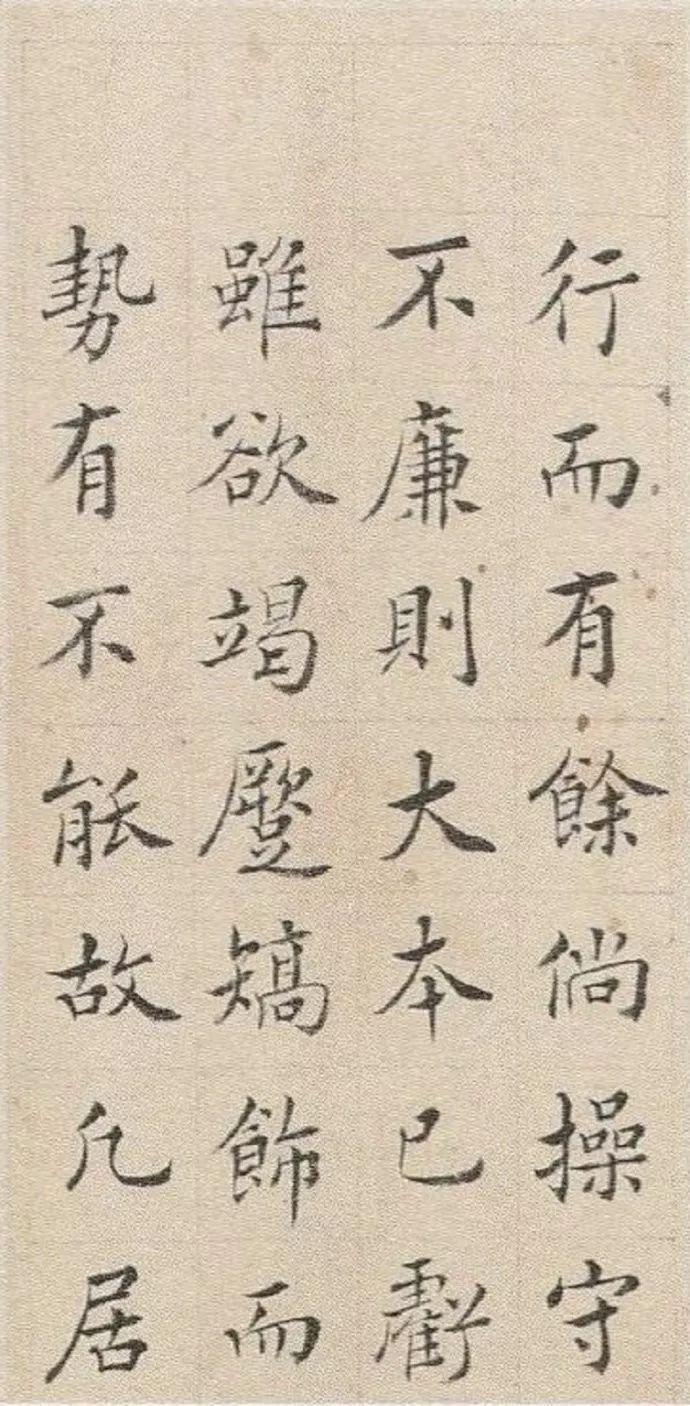 行而有餘倘操守
不廉則大本已虧
雖欲竭蹷矯飾而
勢有不能故凡居